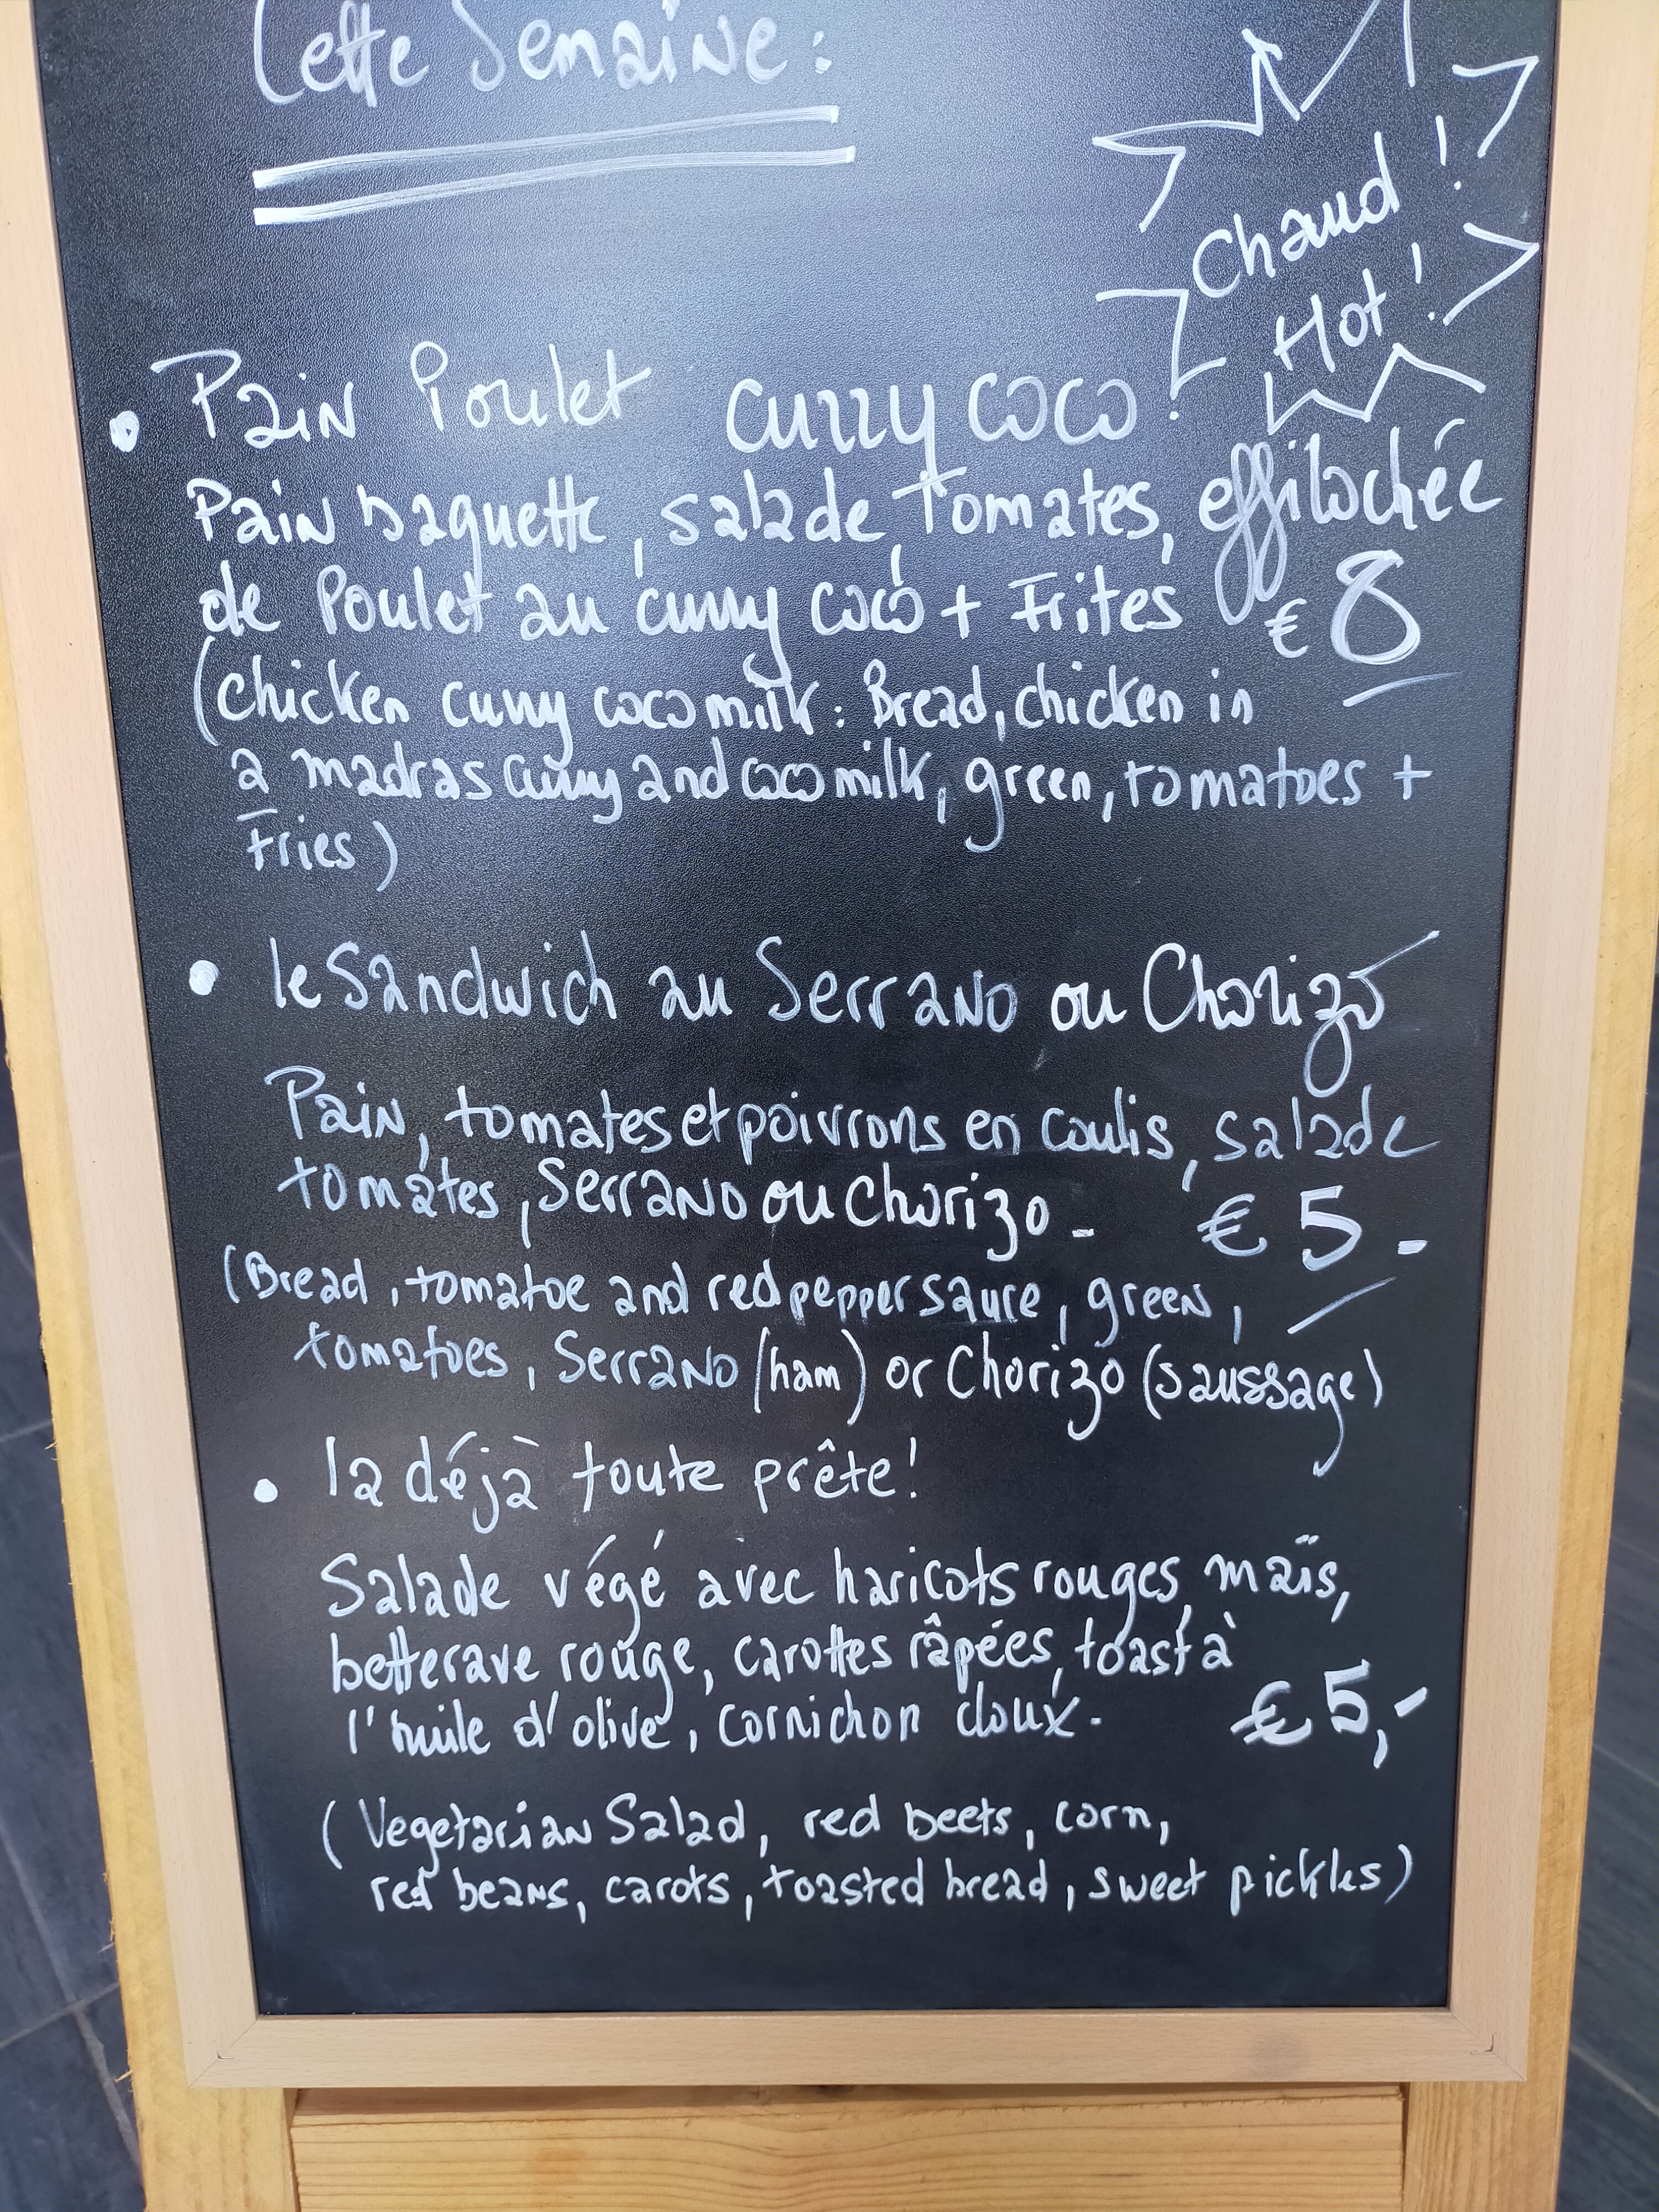 Cette Semaine :
Chaud !
Hot !
• Pain Poulet curry coco !
Pain baguette, salade, tomates, effilochée
de Poulet au curry coco + Frites €8
(chicken curry coco milk : Bread, chicken in
a madras curry and coco milk, green, tomatoes +
Fries)
• le Sandwich au Serrano ou Chorizo
Pain, tomates et poivrons en coulis, salade
tomates, Serrano ou Chorizo - € 5 -
(Bread, tomatoe and red pepper sauce, green,
tomatoes, Serrano (ham) or Chorizo (saussage)
• la déjà toute prête !
Salade végé avec haricots rouges, maïs,
betterave rouge, carottes râpées, toast à
l'huile d'olive, cornichon doux. €5,-
(Vegetarian Salad, red beets, corn,
red beans, carots, toasted bread, sweet pickles)